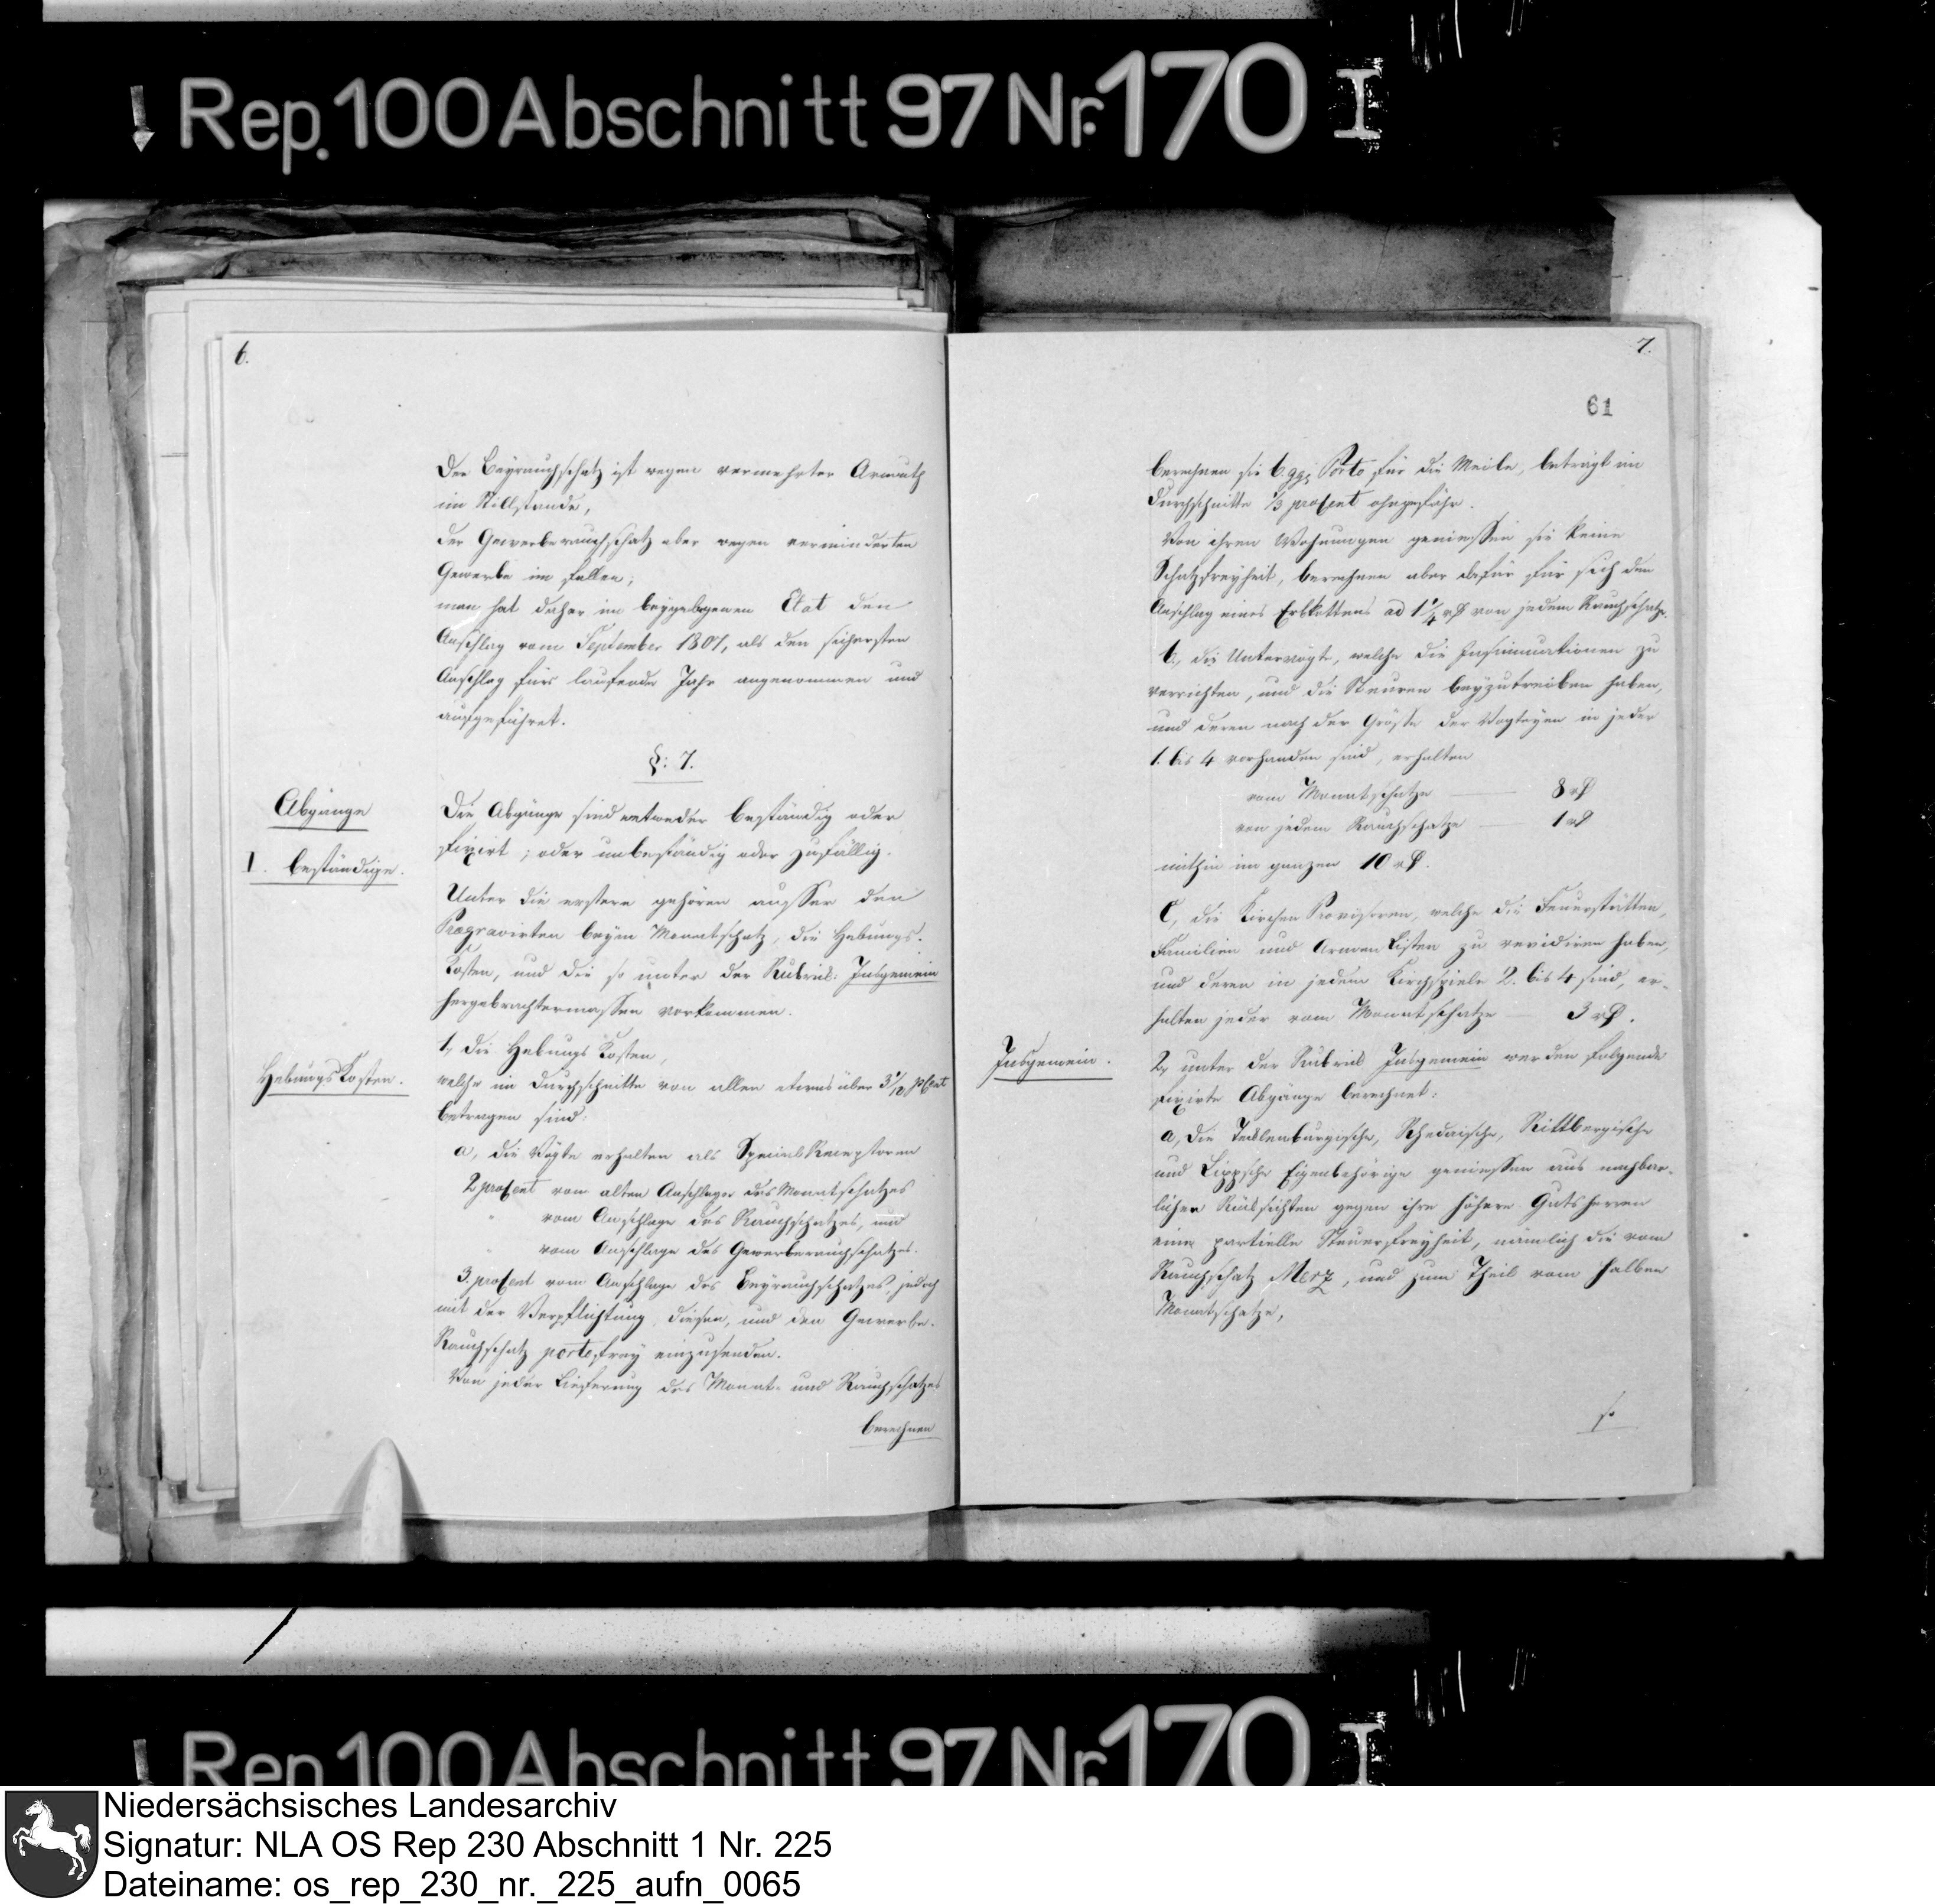 Rep. 100 Abschnitt 97 Nr. 170 I
6.
Der Beyrauchschatz ist wegen vermehrter Armuth
im Stillstande,
der Gewerberauchschatz aber wegen verminderten
Gewerbe im fallen;
man hat daher im beygebogenen Etat den
Anschlag vom September 1807, als den sichersten
Anschlag fürs laufende Jahr angenommen und
aufgeführet.
§: 7.
Abgänge
Die Abgänge sind entweder beständig oder
fixirt; oder unbeständig oder zufällig.
I. beständige.
Unter die erstere gehören ausser den
Prægravirten beym Monatschatz, die Hebungs-
Kosten, und die so unter der Rubrick: Insgemein
hergebrachtermassen vorkommen.
1, die Hebungs Kosten,
Hebungs Kosten.
welche im Durchschnitte von allen etwas über 3 1/2 pCent
betragen sind:
a, die Vögte erhalten als Special Receptoren
2 proCent vom alten Anschlage des Monatschatzes
" vom Anschlage des Rauchschatzes, und
" vom Anschlage des Gewerberauchschatzes.
3. proCent vom Anschlage des Beyrauchschatzes, jedoch
mit der Verpflichtung, diesen, und den Gewerbe-
Rauchschatz portofrey einzusenden.
Von jeder Lieferung des Monat- und Rauchschatzes
berechnen
7.
61
berechnen sie 6. ggr Porto für die Meile, beträgt im
Durchschnitte 1/3 proCent ohngefähr.
Von ihren Wohnungen geniessen sie keine
Schatzfreyheit, berechnen aber dafür für sich den
Anschlag eines Erbkottens ad 1 1/4 rt von jedem Rauchschatze.
b, die Untervögte, welche die Insinuationen zu
verrichten, und die Steuren beyzutreiben haben,
und deren nach der Grösse der Vogteyen in jeder
1. bis 4 vorhanden sind, erhalten
vom Monatschatze 8 rt
von jedem Rauchschatze 1 rt
mithin im ganzen 10 rt.
C, die Kirchen Provisoren, welche die Feuerstätten,
Familien und Armen Listen zu revidiren haben,
und deren in jedem Kirchspiele 2. bis 4 sind, er-
halten jeder vom Monatschatze 3 rt.
Insgemein.
2, unter der Rubrick Insgemein werden folgende
fixirte Abgänge berechnet:
a, Die Tecklenburgische, Rhedaische, Rittbergische
und Lippsche Eigenbehörige geniessen aus nachbar-
lichen Rücksichten gegen ihre höhere Gutsherren
eine partielle Steuerfreyheit, nämlich die vom
Rauchschatz Merz, und zum Theil vom halben
Monatschatze,
Rep. 100 Abschnitt 97 Nr. 170 I
Niedersächsisches Landesarchiv
Signatur: NLA OS Rep 230 Abschnitt 1 Nr. 225
Dateiname: os_rep_230_nr._225_aufn_0065